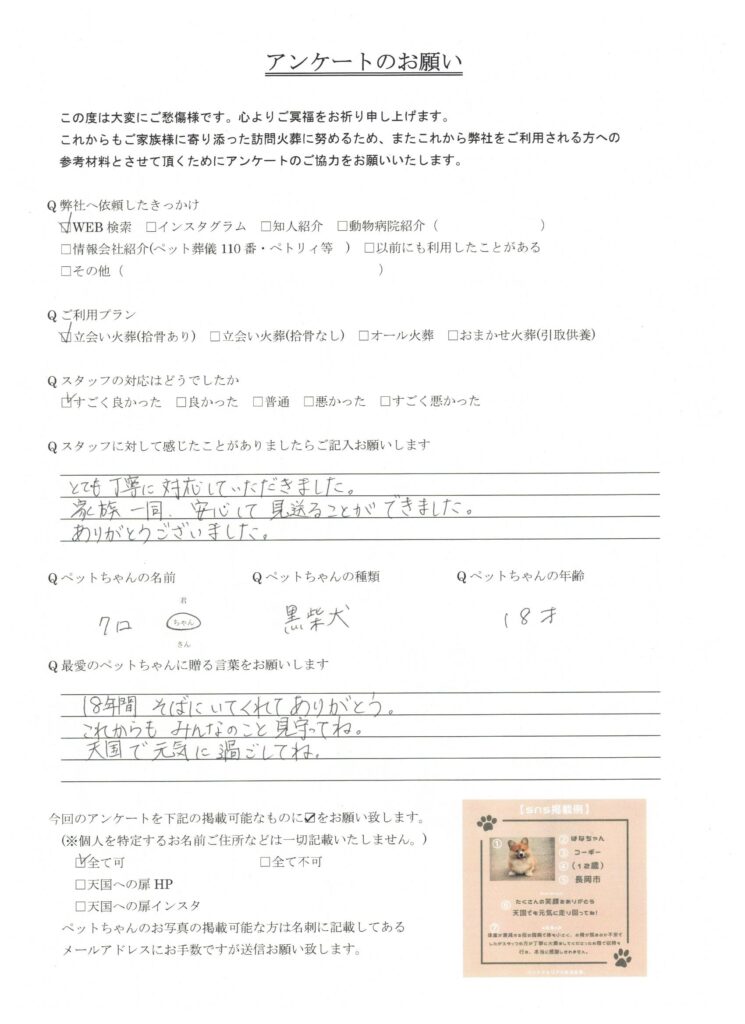 アンケートのお願い
この度は大変にご愁傷様です。心よりご冥福をお祈り申し上げます。
これからもご家族様に寄り添った訪問火葬に努めるため、またこれから弊社をご利用される方への
参考材料とさせて頂くためにアンケートのご協力をお願いいたします。
Q 弊社へ依頼したきっかけ
☑WEB 検索 □インスタグラム □知人紹介 □動物病院紹介（ ）
□情報会社紹介(ペット葬儀 110 番・ペトリィ等 ) □以前にも利用したことがある
□その他（ ）
Q ご利用プラン
☑立会い火葬(拾骨あり) □立会い火葬(拾骨なし) □オール火葬 □おまかせ火葬(引取供養)
Q スタッフの対応はどうでしたか
☑すごく良かった □良かった □普通 □悪かった □すごく悪かった
Q スタッフに対して感じたことがありましたらご記入お願いします
とても丁寧に対応していただきました。
家族一同、安心して見送ることができました。
ありがとうございました。
Q ペットちゃんの名前 Q ペットちゃんの種類 Q ペットちゃんの年齢
君
クロ ちゃん 黒柴犬 18才
さん
Q 最愛のペットちゃんに贈る言葉をお願いします
18年間 そばにいてくれてありがとう。
これからも みんなのこと 見守ってね。
天国で元気に過ごしてね。
今回のアンケートを下記の掲載可能なものに☑をお願い致します。
(※個人を特定するお名前ご住所などは一切記載いたしません。)
☑全て可 □全て不可
□天国への扉 HP
□天国への扉インスタ
ペットちゃんのお写真の掲載可能な方は名刺に記載してある
メールアドレスにお手数ですが送信お願い致します。
【sns掲載例】
① ② はなちゃん
③ コーギー
④ (12歳)
⑤ 長岡市
⑥ たくさんの笑顔をありがとう
天国でも元気に走り回ってね!
⑦